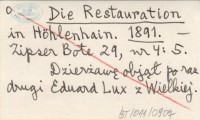 Die Restauration
in Höhlenhain. 1891. —
Zipser Bote 29, nr 4: 5.
Dzierżawę objął po raz
drugi Eduard Lux z Wielkiej.